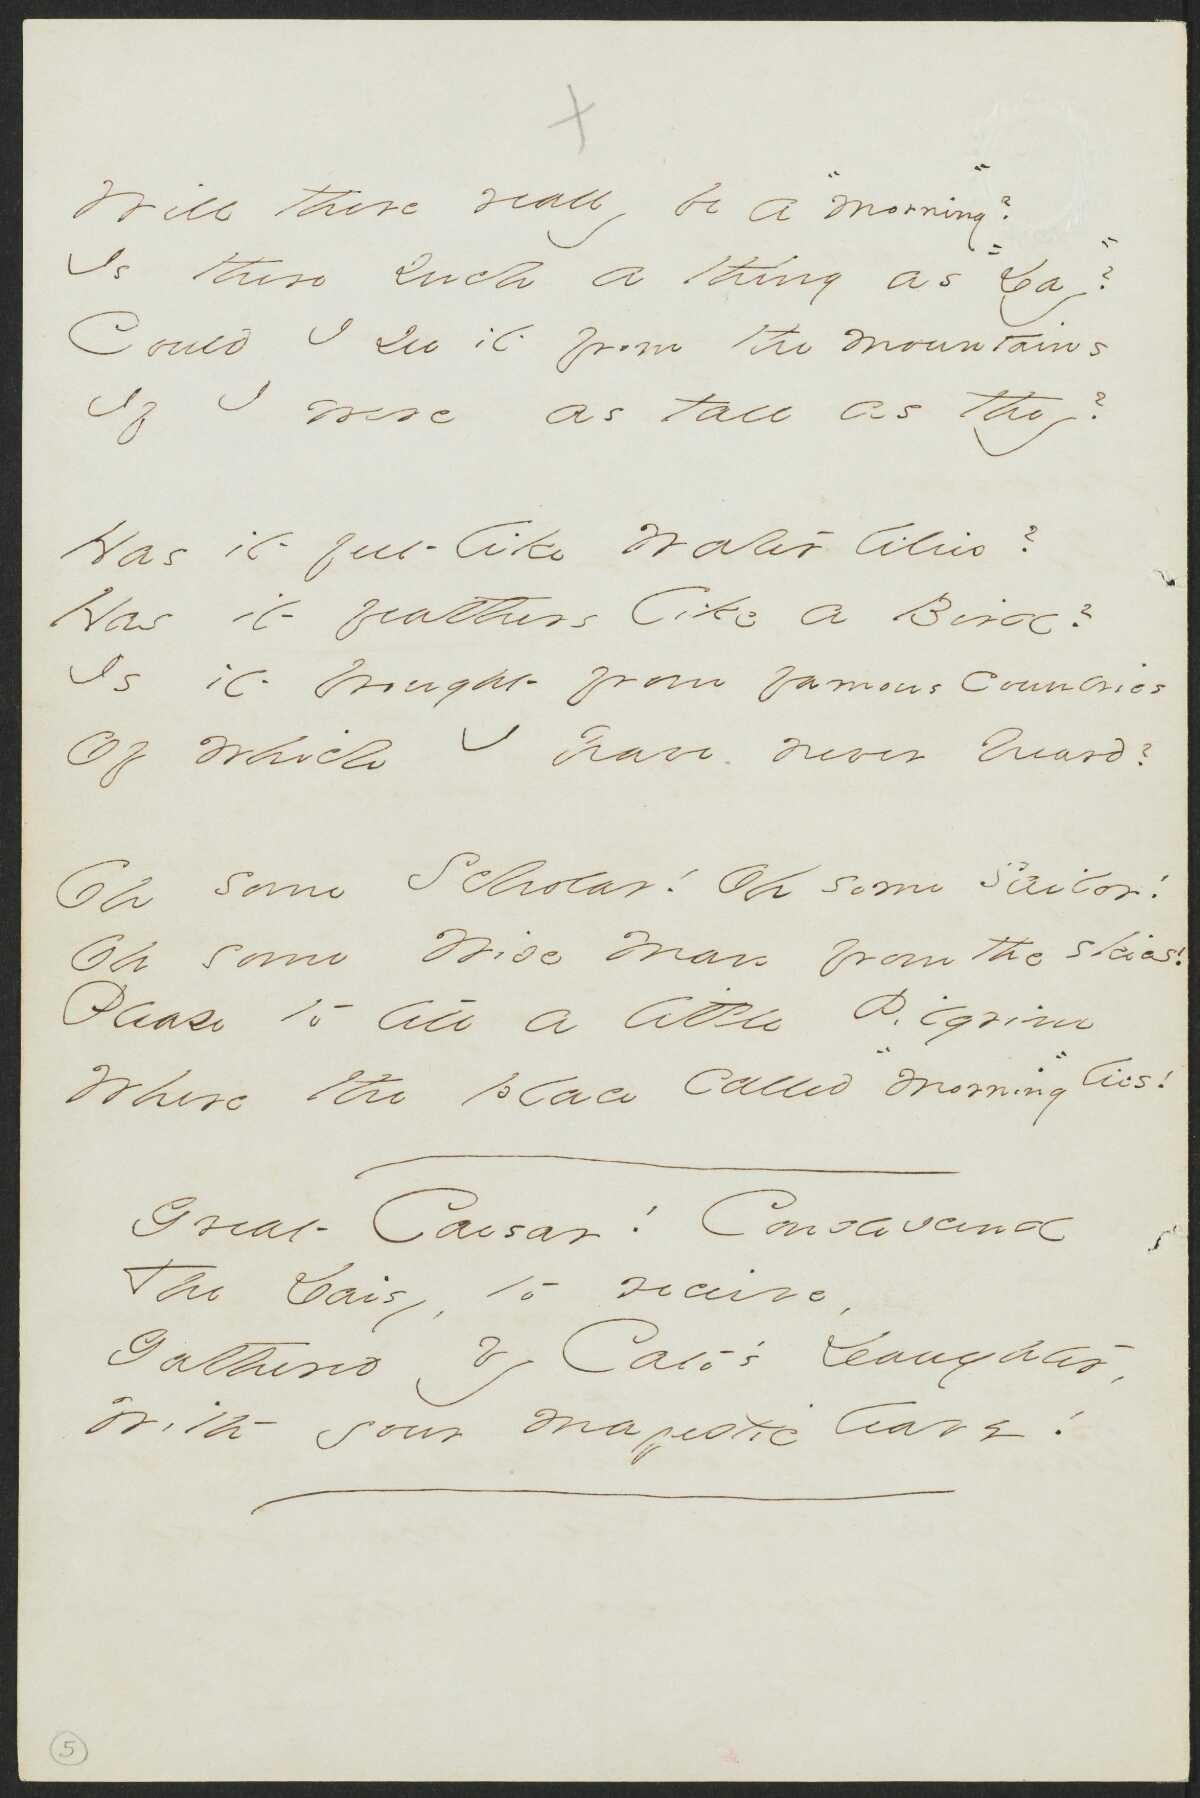 Will there really be a "morning"?
Is there such a thing as "Day"?
Could I see it from the mountains
If I were as tall as they?
Has it feet like Water lilies?
Has it feathers like a Bird?
Is it brought from famous countries
Of which I have never heard?
Oh some Scholar! Oh some Sailor!
Oh some Wise Man from the skies!
Please to tell a little Pilgrim
Where the place called "morning" lies!
Great Caesar! Condescend
The Daisy, to receive,
Gathered by Cato's Daughter,
With your majestic leave!
5